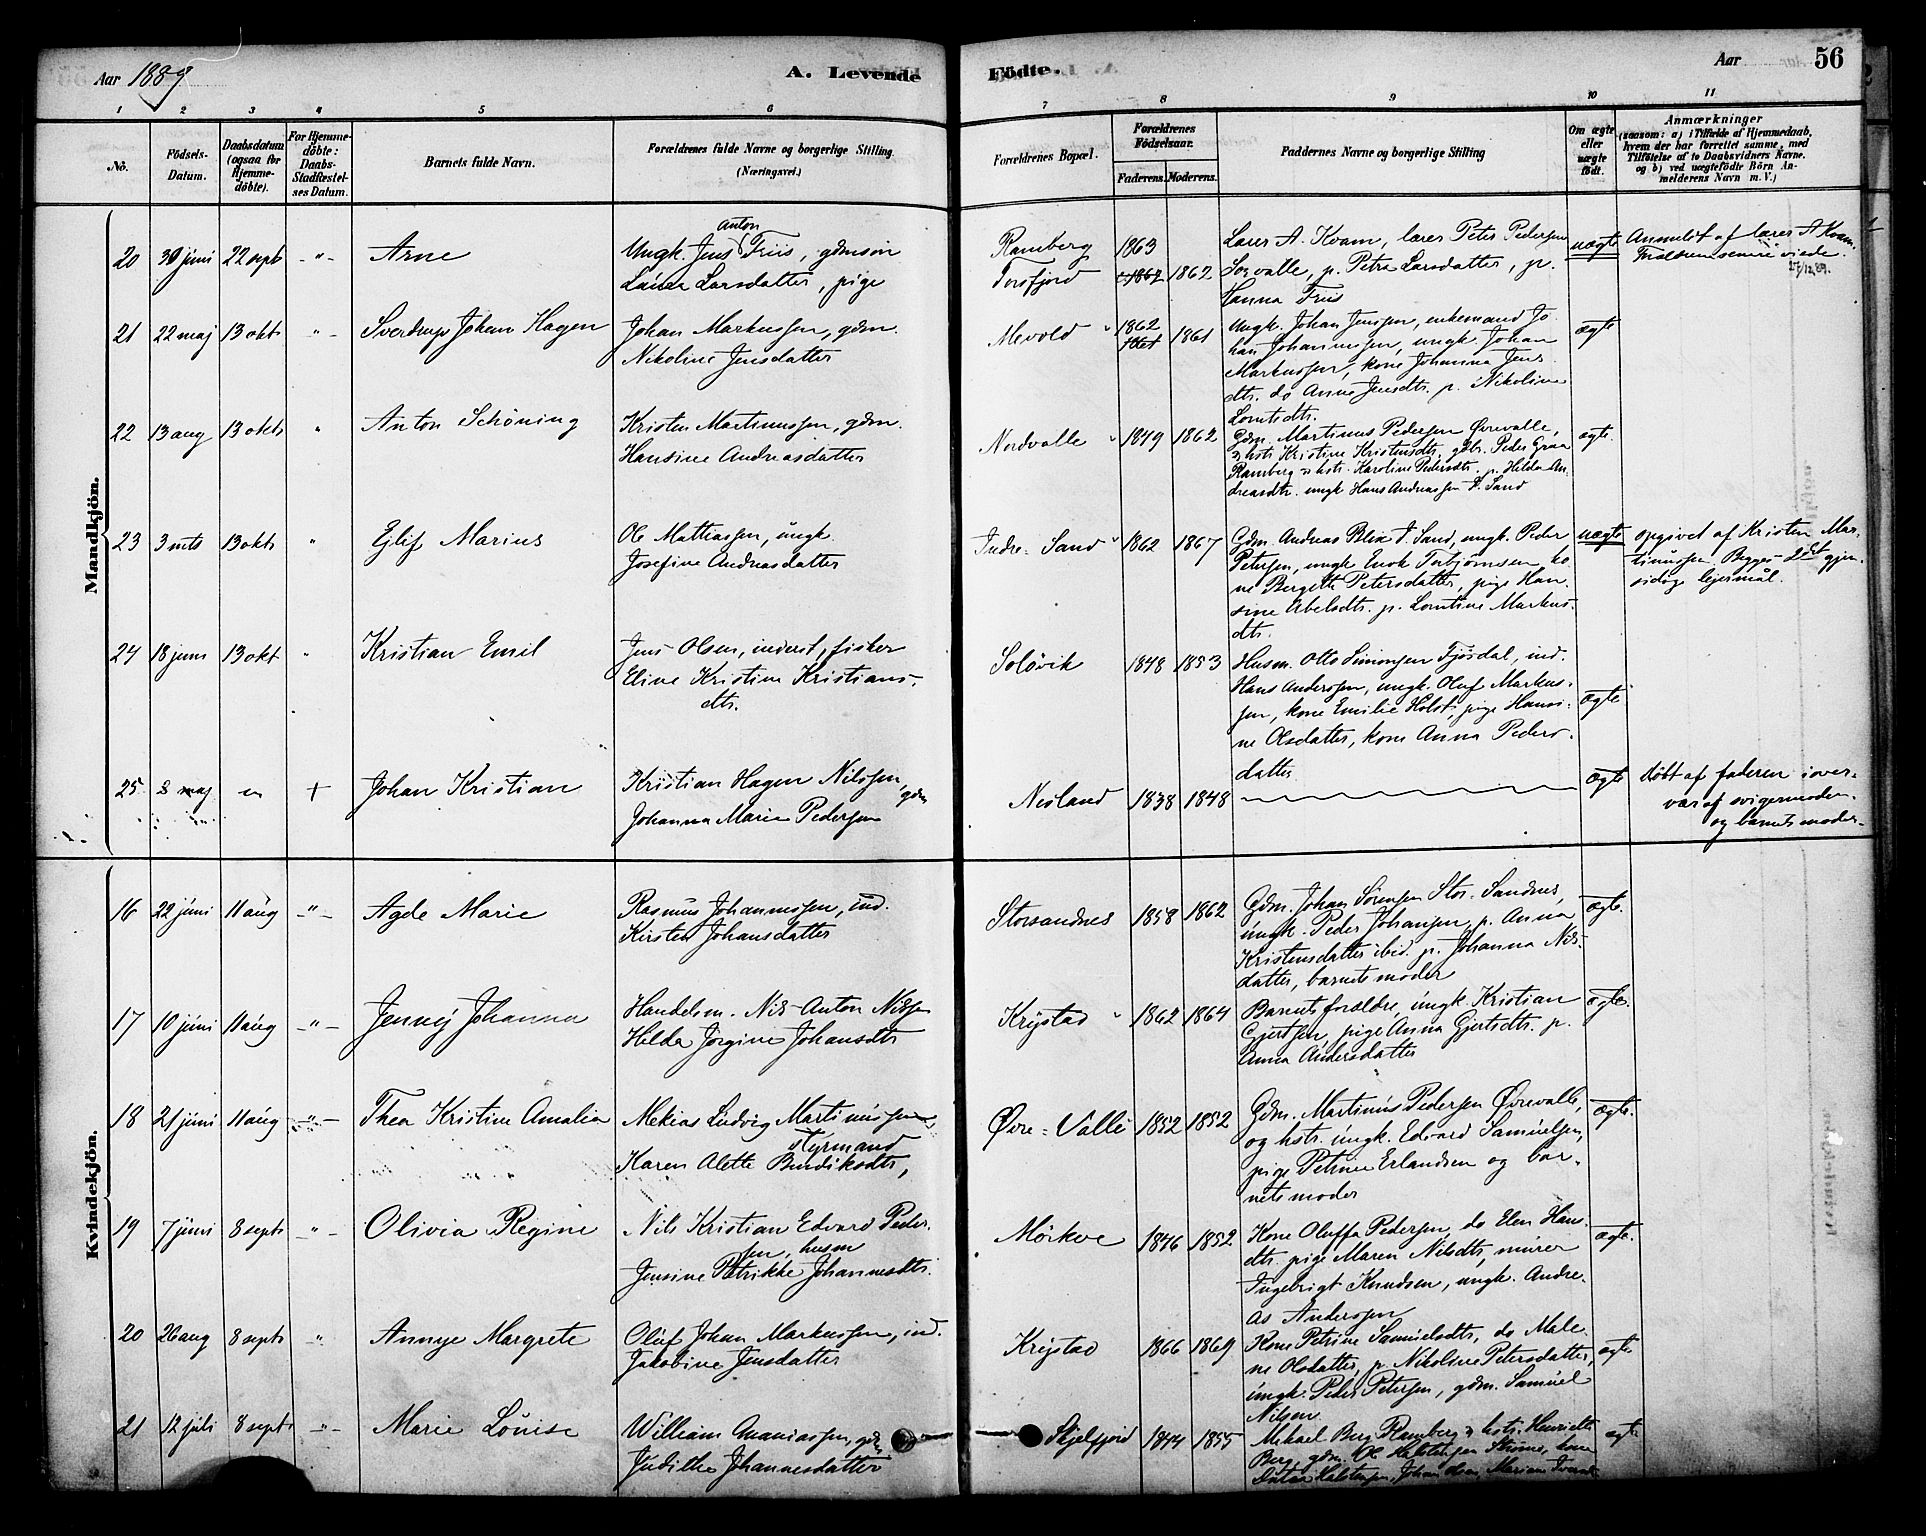 Aar 1889
A. Levende
Födte.
Aar
56
1 2 3 4 5 6 7 8 9 10 11
No.
Födsels-Datum.
Daabsdatum (ogsaa for Hjemmedöbte).
For Hjemmedöbte: Daabs-Stadfæstelses Datum.
Barnets fulde Navn.
Forældrenes fulde Navne og borgerlige Stilling (Næringsvei.)
Forældrenes Bopæl.
Forældrenes Födselsaar.
Faderens. Moderens.
Faddernes Navne og borgerlige Stilling
Om ægte eller uægte födt.
Anmærkninger
(saasom: a) i Tilfælde af Hjemmedaab, hvem der har forrettet samme, med Tilföielse af to Daabsvidners Navne, og b) ved uægtefödte Börn Anmelderens Navn m. V.)
Mandkjön.
20 30 juni 22 sept -"- Arne
Ungk. Jens Anton Friis, gdmsön
Laura Larsdatter, pige
Ramberg 1863
Torsfjord 1862 1862
Lærer A. Kvam, lærer Peter Pedersen
Sorvalle, p. Petra Larsdatter, p.
Hanna Friis
uægte
Anmeldt af lærer A Kvam.
Forældrene senere viede.
27/12 89.
21 22 maj 13 okt -"- Sverdrup Johan Hagen
Johan Markussen, gdm.
Nikoline Jensdatter
Mevold 1862 1861
Ungk. Johan Jenssen, enkemand Jo
han Johannessen, ungk. Johan
Markussen, kone Johanna Jens
dtr. do Anne Jensdtr. p. Nikoline
Lorntsdtr.
ægte
22 13 aug 13 okt " Anton Schöning
Kristen Martinussen, gdm.
Hansine Andreasdatter
Nordvalle 1849 1862
Gdm. Martinus Pedersen Øvrevalle,
& hstr. Kristine Kristensdtr, gdbr. Peder Graa
Ramberg & hstr. Karoline Pedersdtr. p. Hilda An-
dreasdtr. ungk Hans Andreassen I. Sand
ægte.
23 3 13 okt " Ejlif Marius
Ole Mattiassen, ungk.
Josefine Andreasdatter
Indre-Sand 1862 1867
Gdm. Andreas Blix I. Sand, ungk. Peder
Petersen, ungk Enok Torbjörnsen ko
ne Bergitte Petersdatter, pige Han-
sine Abelsdtr. p. Lorntine Markus-
dtr.
uægte
opgivet af Kristen Mar-
tinussen. Begges 2det gjen-
sidige lejermål.
24 18 juni 13 okt " Kristian Emil
Jens Olsen, inderst, fisker
Eline Kristine Kristians-
dtr.
Solövik 1848 1853
Husm. Otto Simonsen Fjösdal, ind.
Hans Anderssen, ungk. Oluf Markus-
sen, kone Emilie Holst, pige Hansi-
ne Olsdatter, kone Anna Peders-
datter
ægte
25 8 maj + Johan Kristian
Kristian Hagen Nilssen, gdm
Johanna Marie Pedersen
Nesland 1838 1848
ægte
döbt af faderen i over-
vær af svigermoder
og barnets moder.
Kvindekjön.
16 22 juni 11 aug -"- Agde Marie
Rasmus Johannessen, ind.
Kirsten Johansdatter
Storsandnes 1858 1862
Gdm. Johan Sörensen Stor-Sandnes,
ungk. Peder Johansen, p. Anna
Kristensdatter ibid. p. Johanna Nils-
datter, barnets moder
ægte.
17 10 juni 11 aug -"- Jennÿ Johanna
Handelsm. Nils Anton Nilsen
Helda Jörgine Johansdtr
Krÿstad 1862 1864
Barnets forældre, ungk. Kristian
Gjertsen, pige Anna Gjertsdtr. p.
Anna Andersdatter
ægte.
18 21 juni 11 aug -"- Thea Kristine Amalia
Mekias Ludvig Martinussen,
styrmand
Karen Alette Bendiksdtr,
Øvre-Valle 1852 1852
Gdm. Martinus Pedersen Øvrevalle,
og hstr. ungk. Edvard Samuelsen,
pige Petrine Erlandsen og bar-
nets moder
ægte.
19 7 juni 8 sept -"- Olivia Regine
Nils Kristian Edvard Peder-
sen, husm
Jensine Patrikke Johannesdtr.
Mörkve 1846 1852
Kone Oluffa Pedersen, do Elen Han-
dtr. pige Maren Nilsdtr, murer
Ingebrigt Knudsen, ungk. Andre-
as Anderssen
ægte.
20 26 aug 8 sept -"- Annye Margrete
Oluf Johan Markussen, ind.
Jakobine Jensdatter
Krÿstad 1866 1869
Kone Petrine Samuelsdtr, do Male-
ne Olsdatter, p. Nikoline Petersdatter,
ungk. Peder Petersen, gdm. Samuel
Nilsen
ægte
21 12 juli 8 sept -"- Marie Louise
William Ananiassen, gdm
Judithe Johannesdatter
Skjelfjord 1844 1855
Mikael Berg Ramberg & hstr. Henriette
Berg, gdm. Ole Halstensen Strömö, kone
ægte